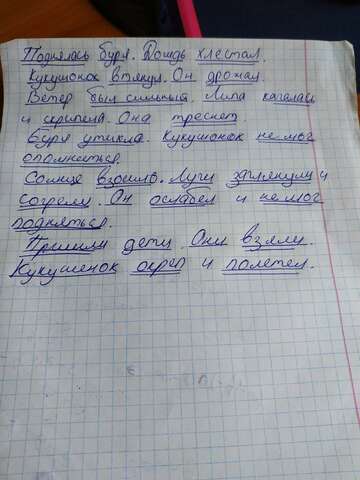 Поднялась буря. Дождь хлестал.
Кукушонок втянул. Он дрожал.
Ветер был сильный. Липа качалась
и скрипела. Она треснет.
Буря утихла. Кукушонок не мог
опомниться.
Солнце взошло. Лучи заглянули и
согрели. Он ослабел и не мог
подняться.
Пришли дети. Они взяли.
Кукушенок окреп и полетел.